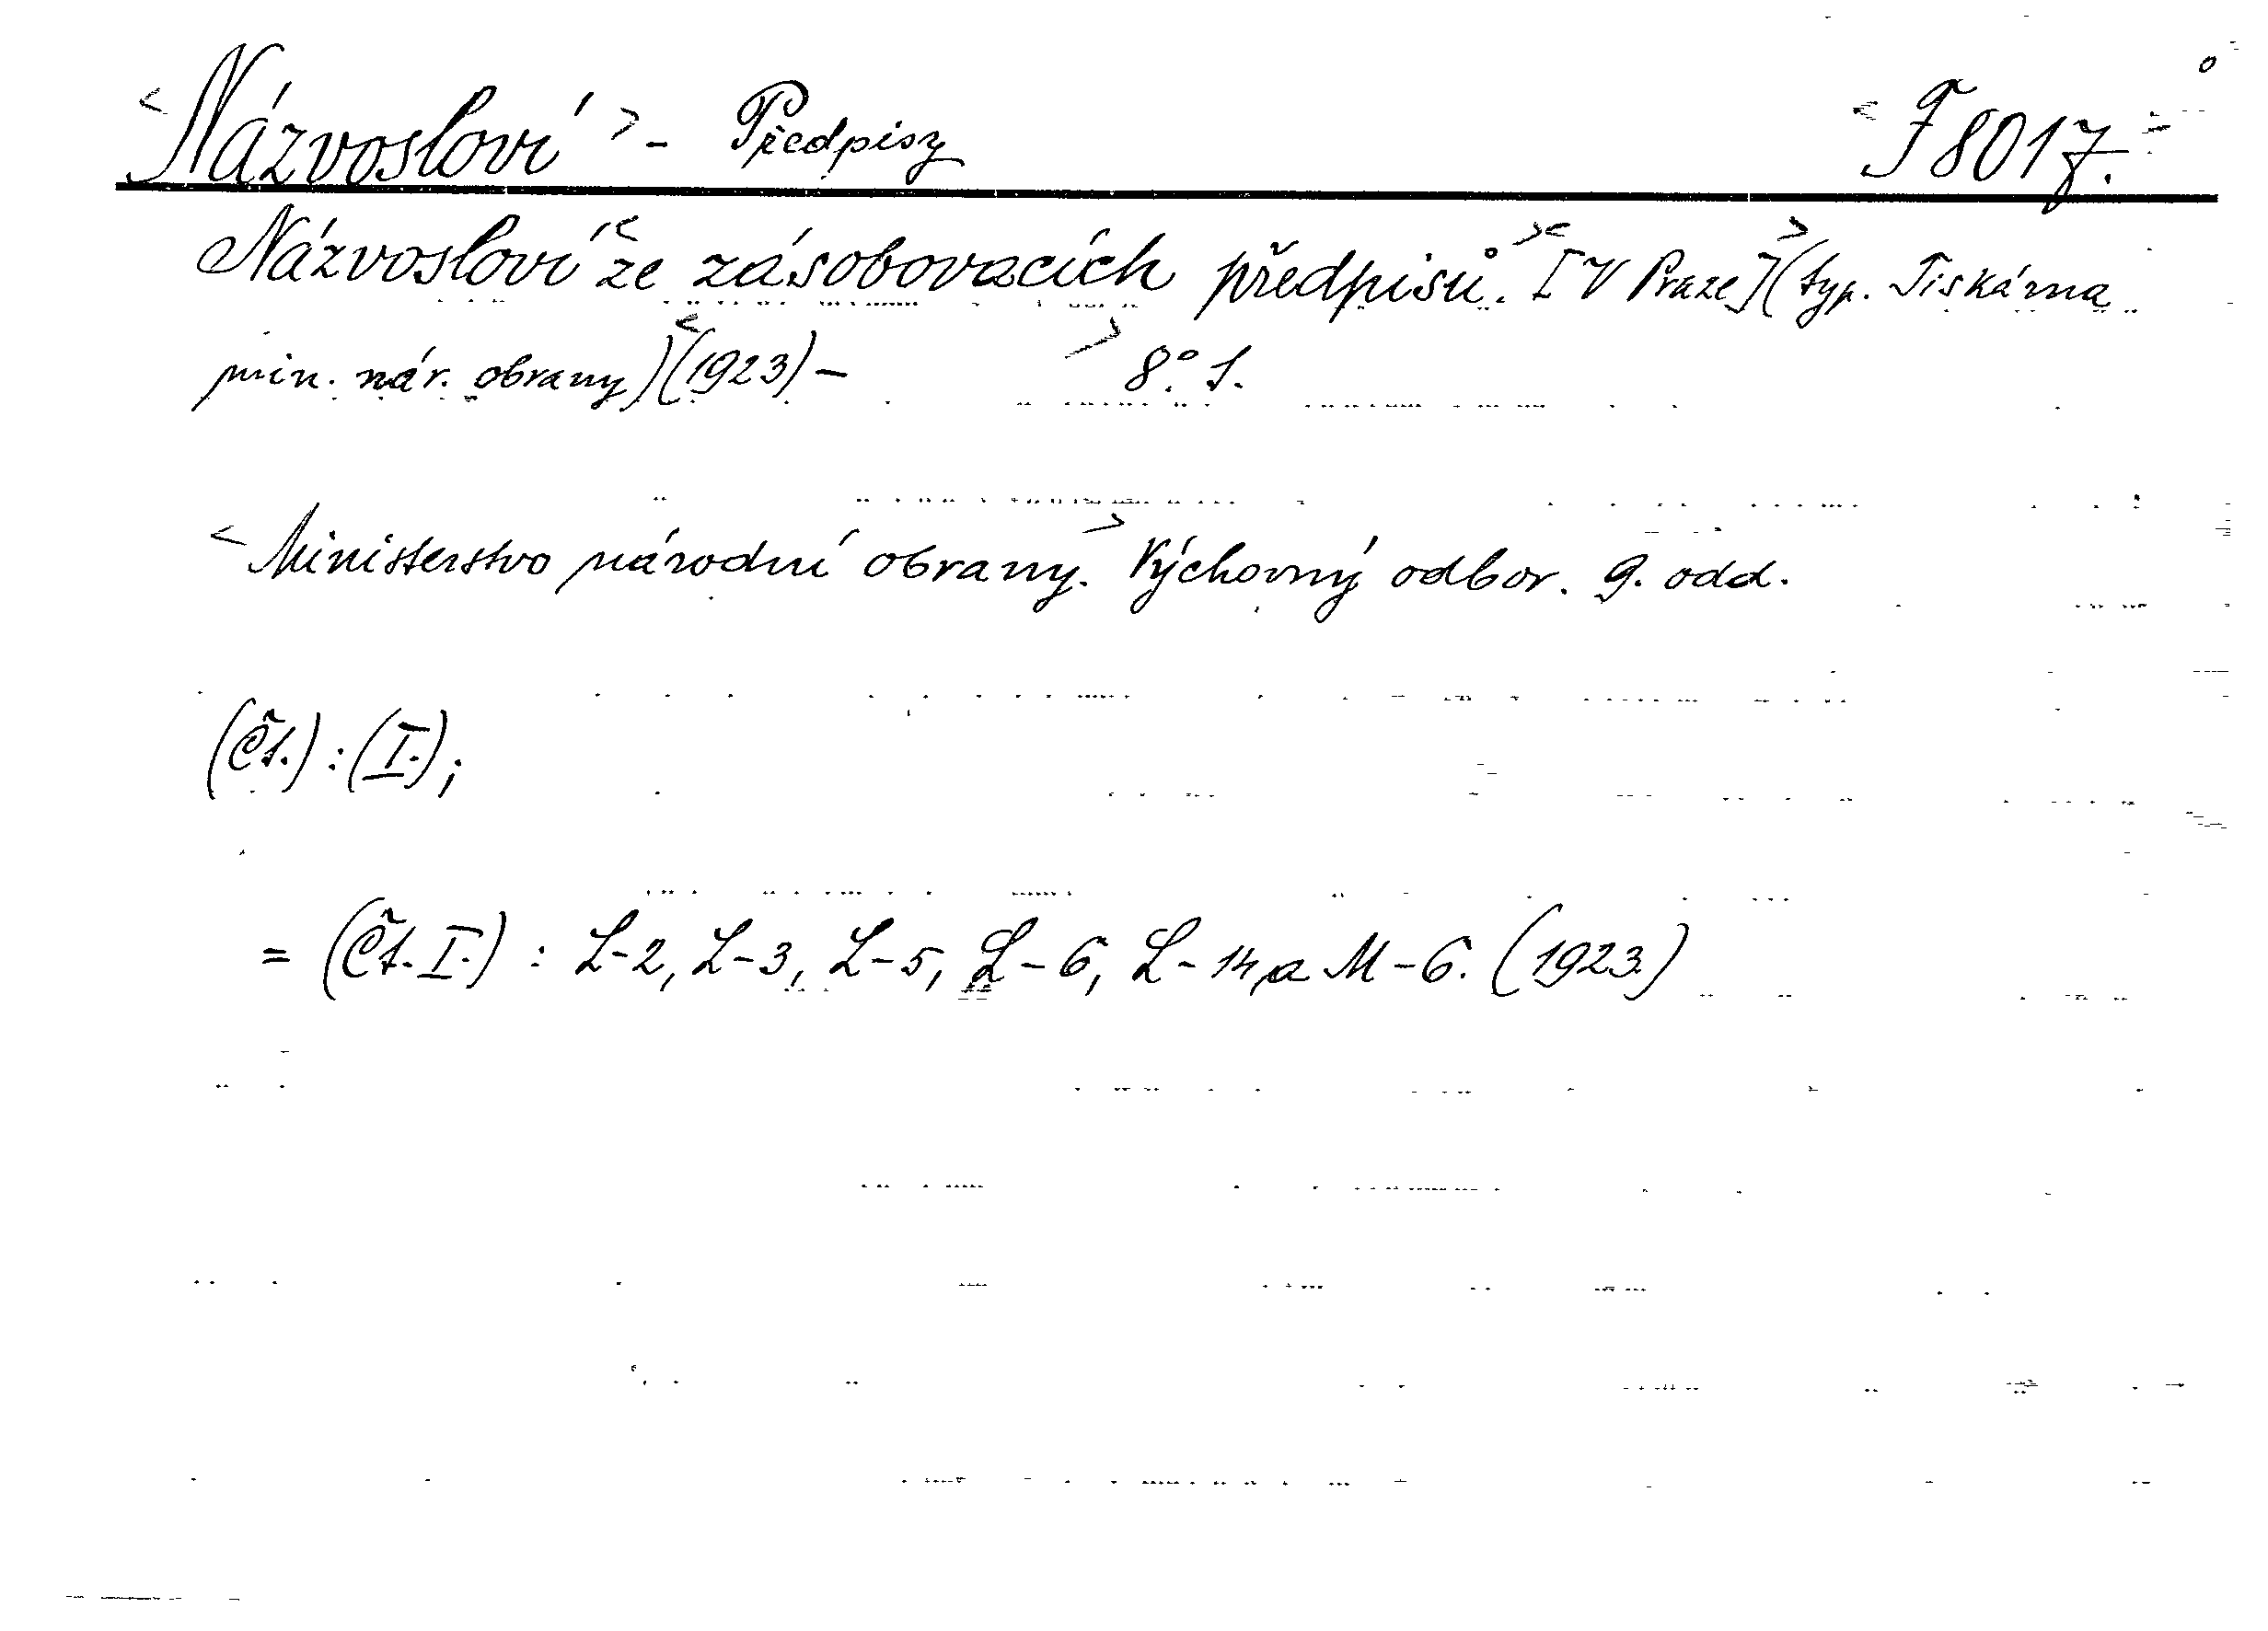 <Názvosloví> - Předpisy <F 8017.>
Názvosloví <ze zásobovacích předpisů.>< [V Praze]> (typ. Tiskárna
min. nár. obrany) <(1923) - > 8°. S.
<Ministerstvo národní obrany.> Výchovný odbor. 9. odd.
(Čt.) : (I.);
= (Čt. I.) : L-2, L-3, L-5, L-6, L-14, a M-6. (1923.)